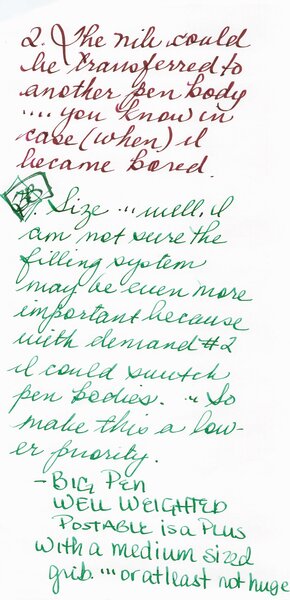 2. The nib could
be transferred to
another pen body
.... you know in
case (when) I
became bored.
3. Size ... well, I
am not sure the
filling system
may be even more
important because
with demand #2
I could switch
pen bodies. ... So
make this a low-
er priority.
- BIG PEN
WELL WEIGHTED
POSTABLE is a PLUS
with a medium sized
grib. ... or at least not huge